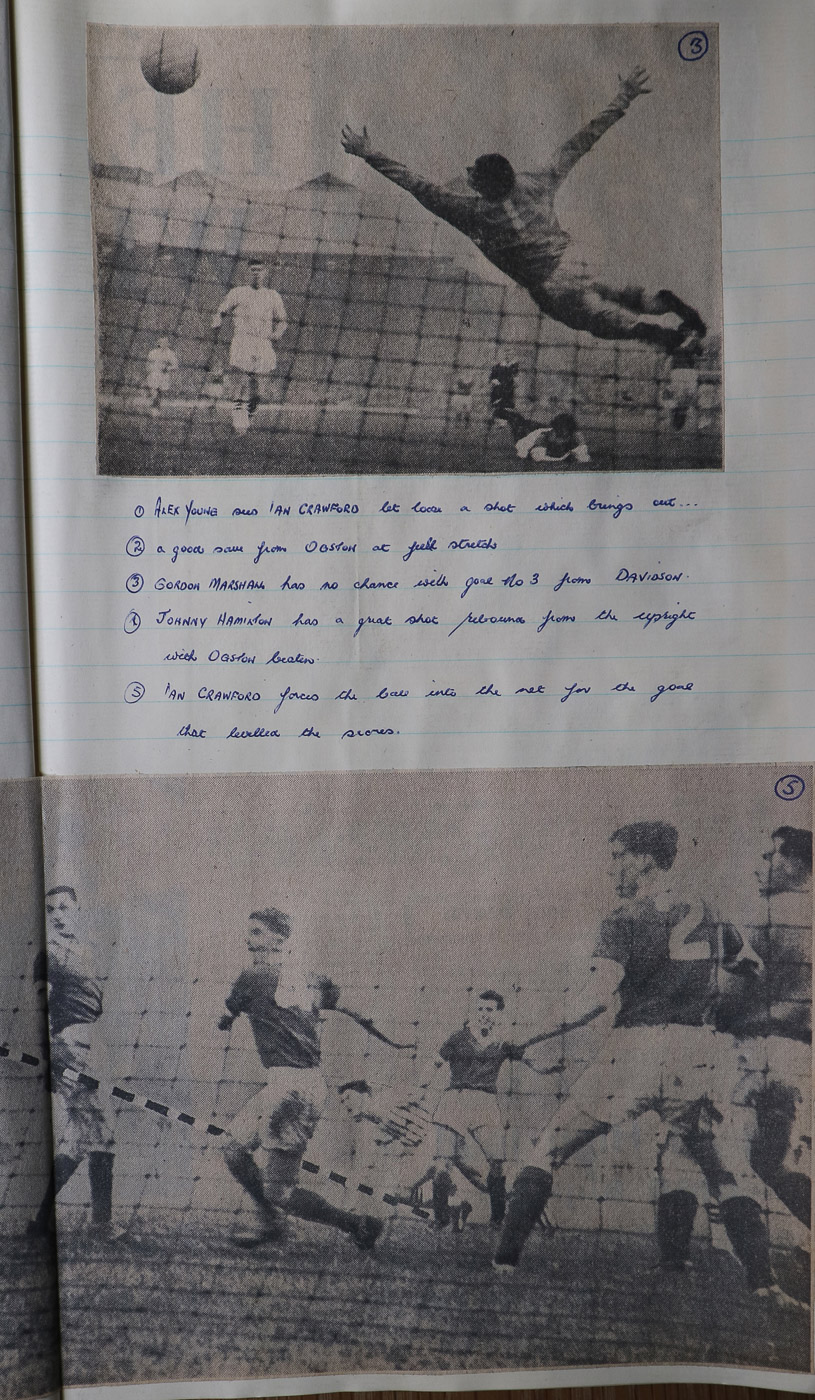 ③
① ALEX YOUNG sees IAN CRAWFORD let loose a shot which brings out...
② a good save from OGSTON at full stretch
③ GORDON MARSHALL has no chance with goal No 3 from DAVIDSON.
④ JOHNNY HAMILTON has a great shot rebound from the upright
with OGSTON beaten.
⑤ IAN CRAWFORD forces the ball into the net for the goal
that levelled the scores.
⑤
2